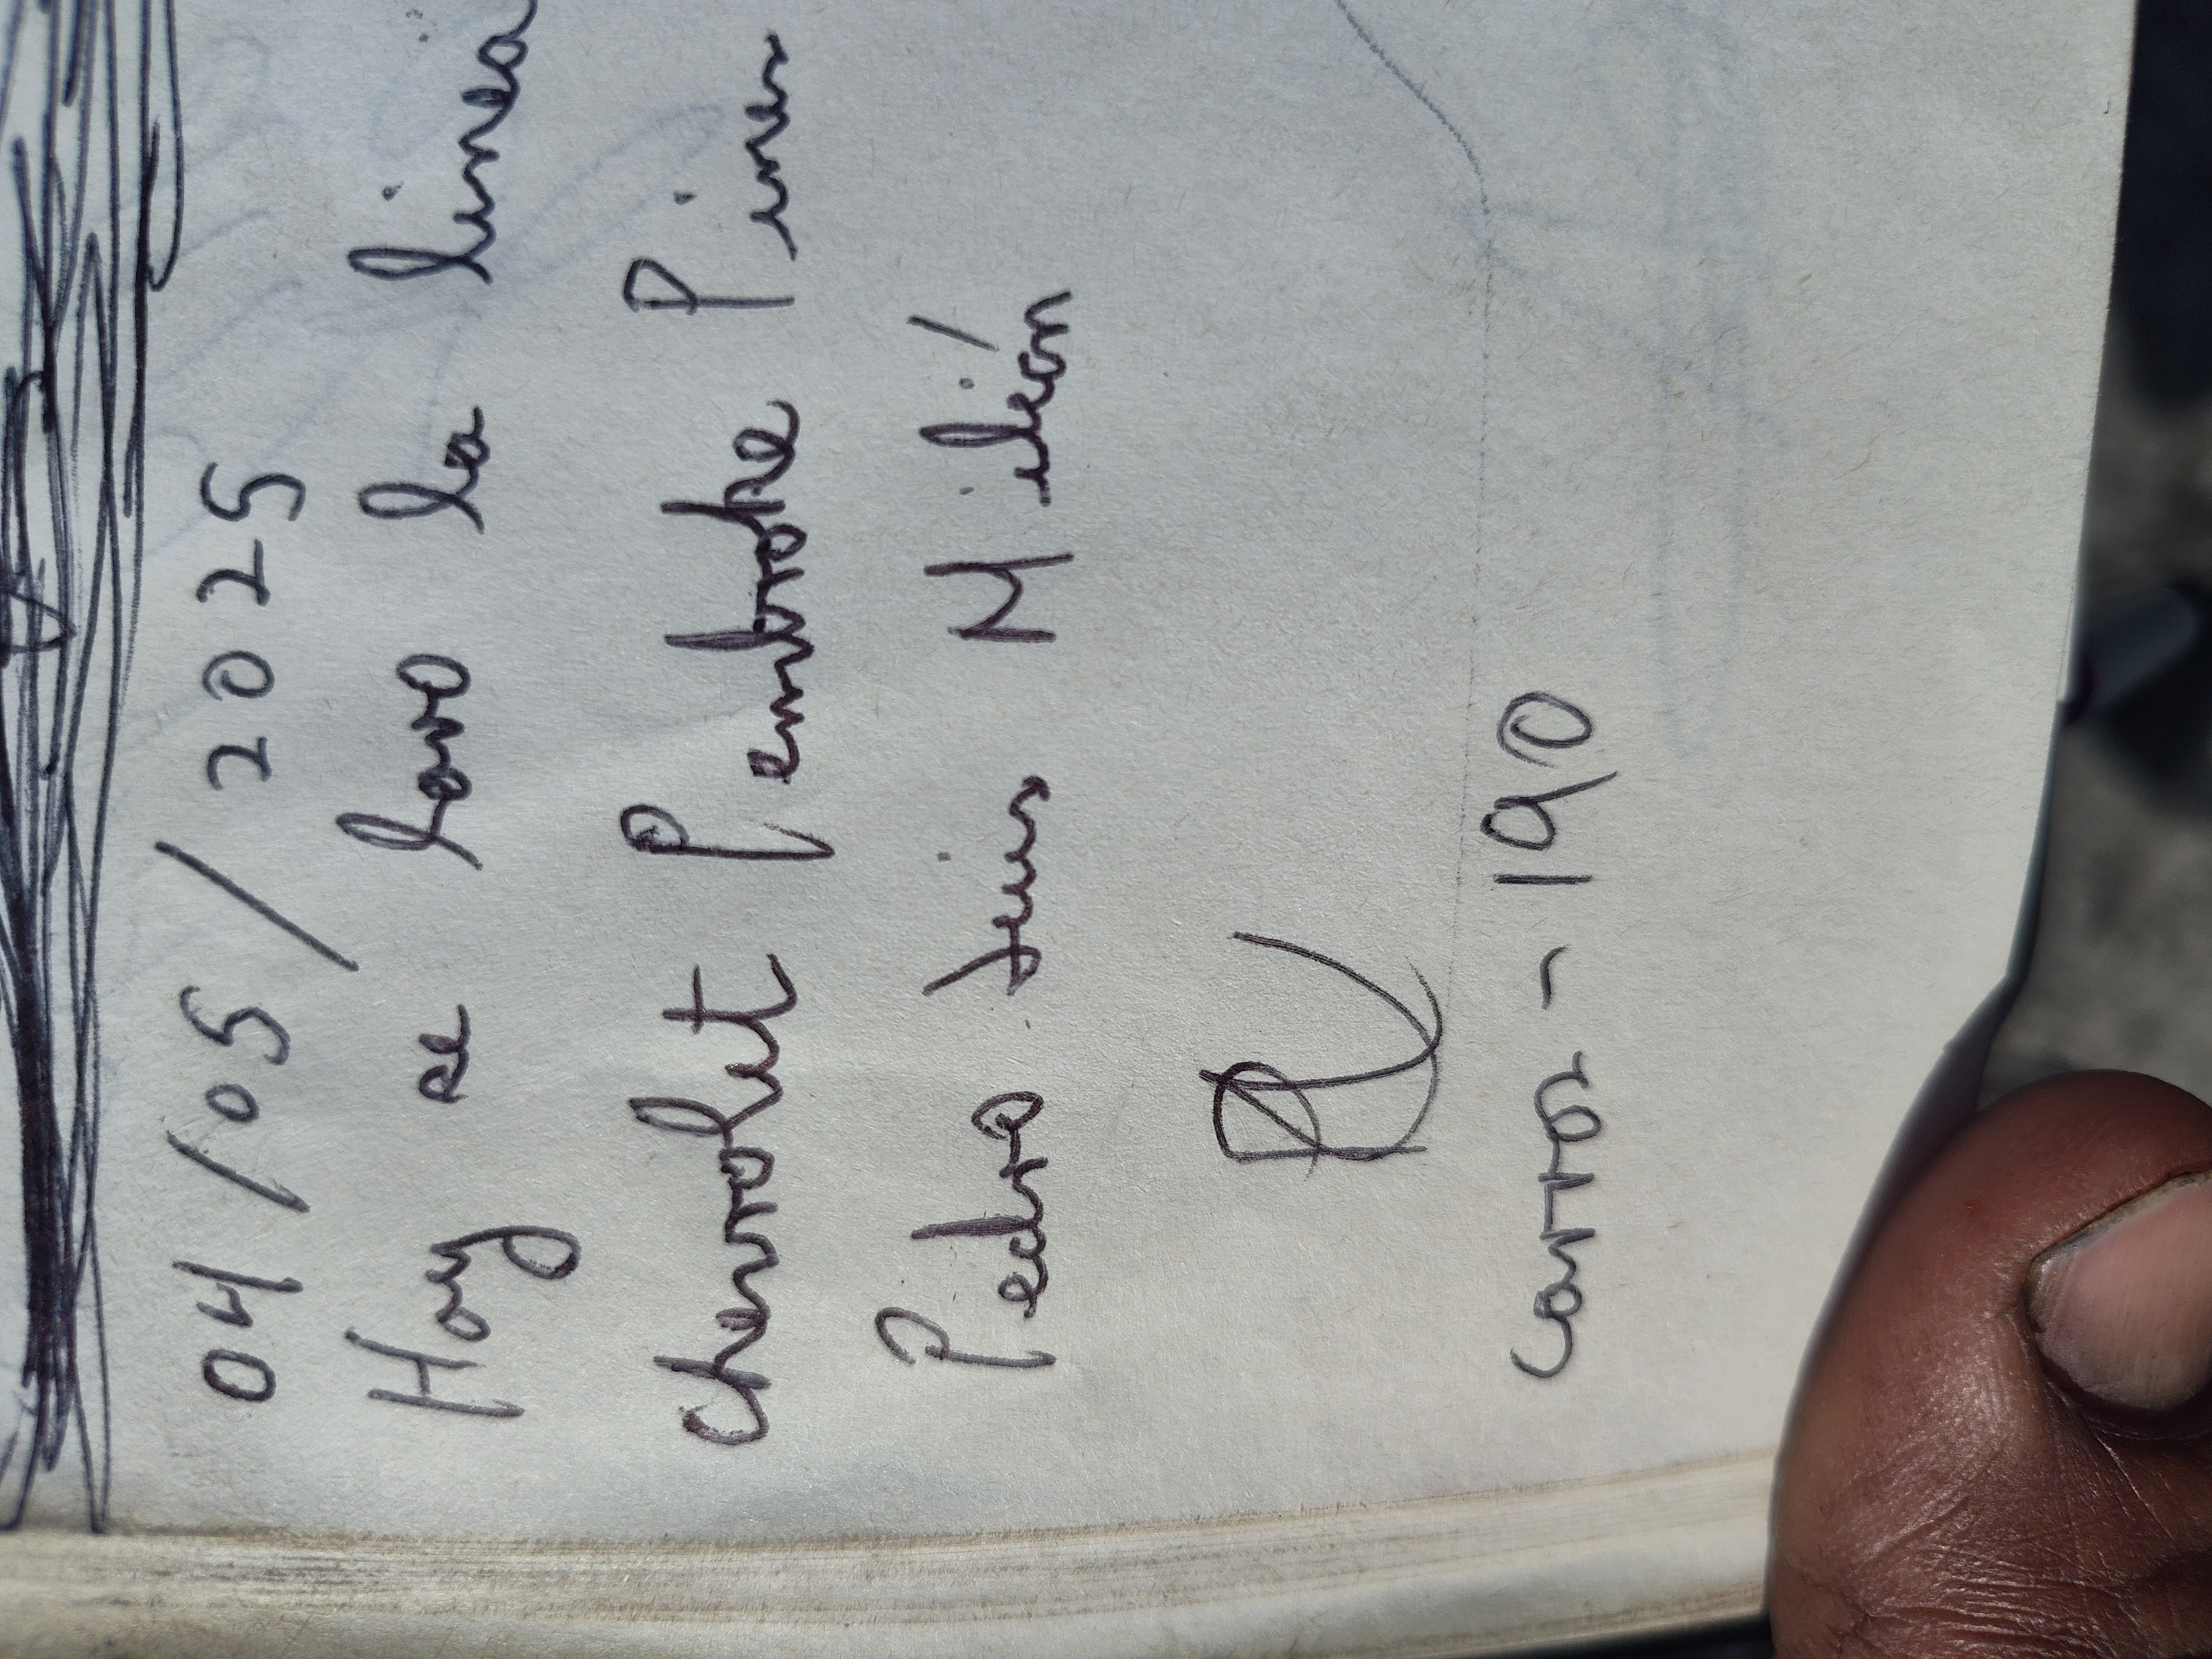 04/05/2025
Hoy se lavo la linea
Chevrolet Pembroke Pines
Pedro Luis Milián
Carros - 190